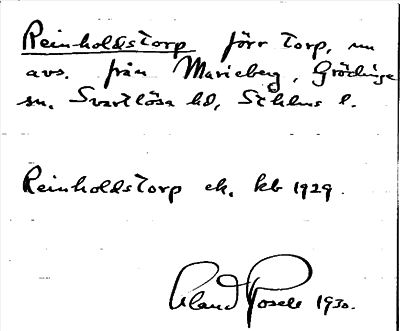 Reinholdstorp förr torp, nu
avs. från Marieberg, Grödinge
sn. Svartlösa hd, Sthlms l.
Reinholdstorp ek. kb 1929.
Rosell 1930.